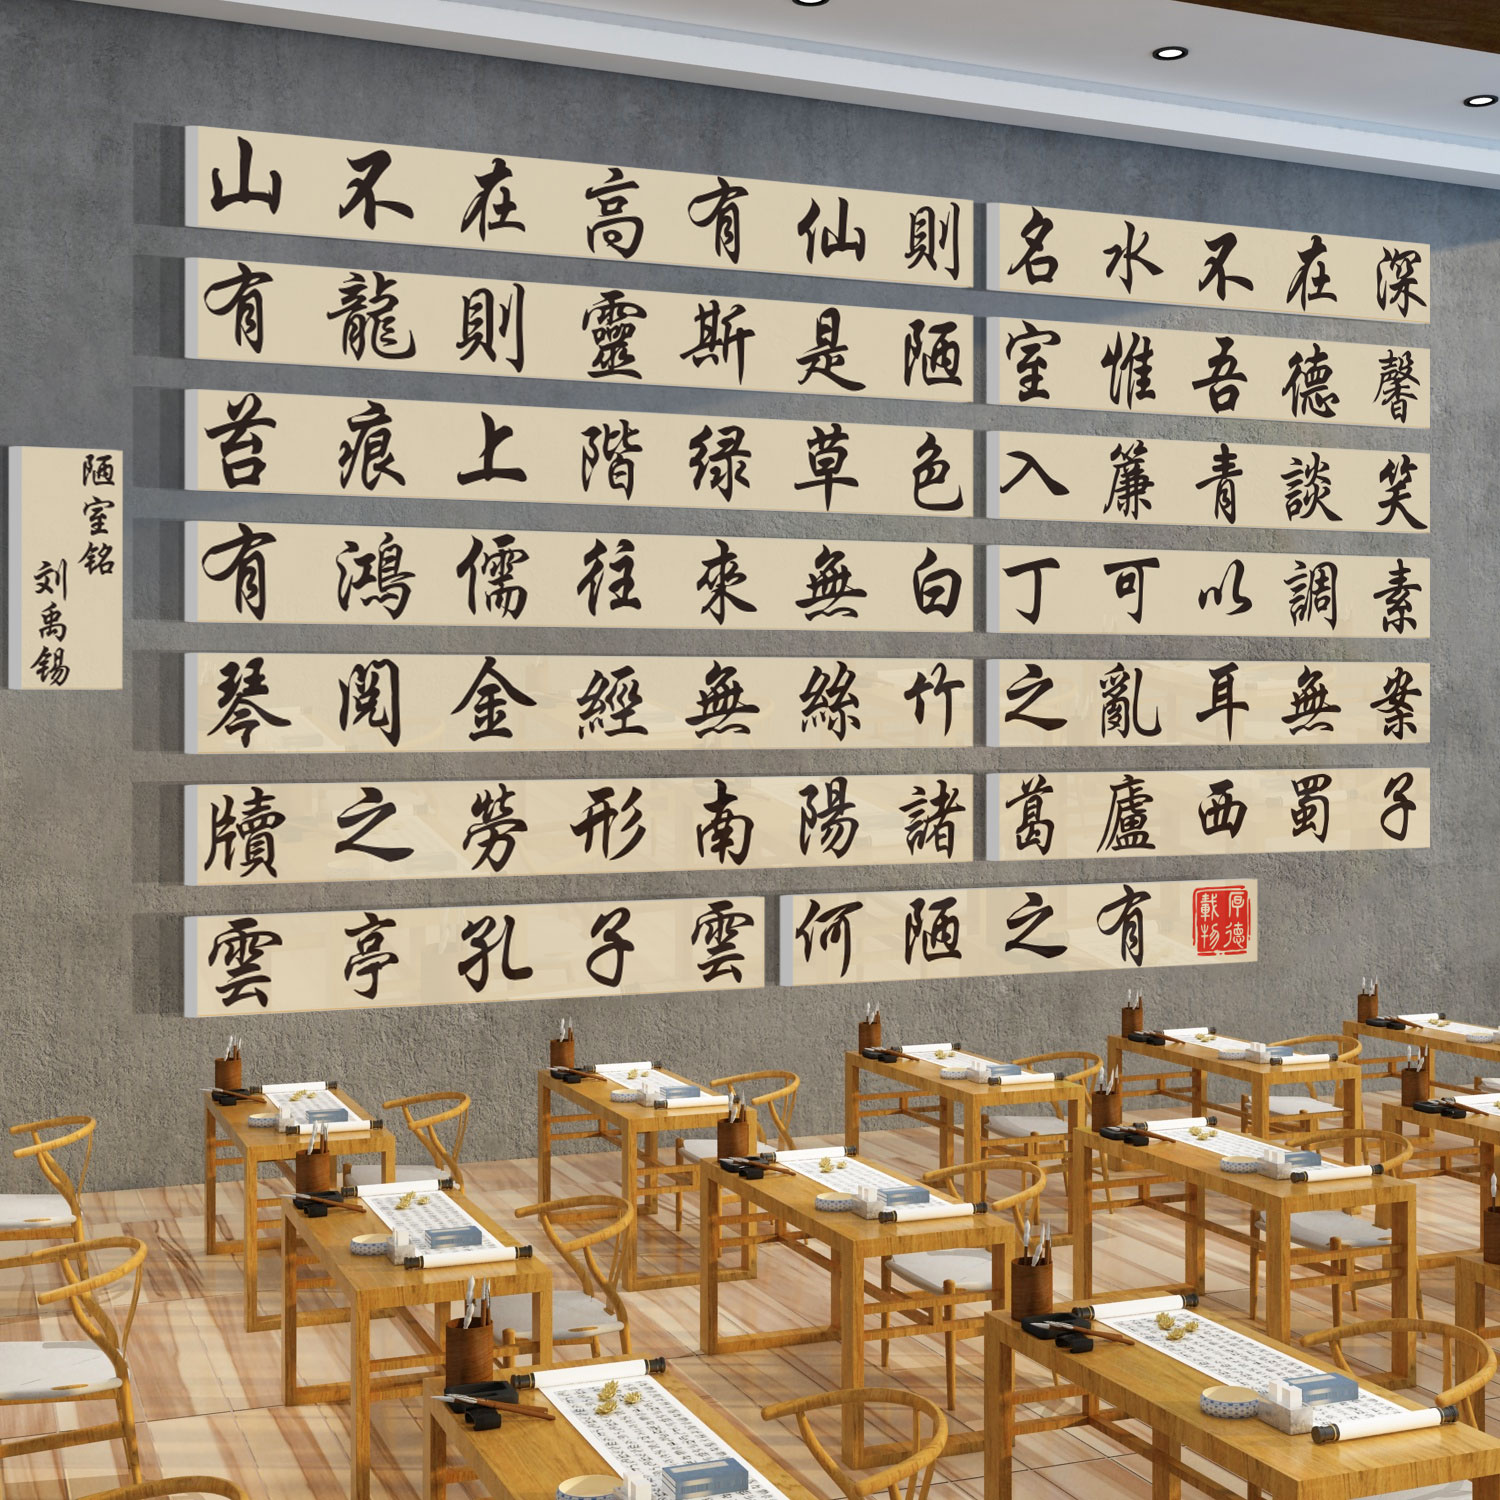 陋室铭
刘禹锡
山不在高有仙則名水不在深
有龍則靈斯是陋室惟吾德馨
苔痕上階绿草色入簾青談笑
有鴻儒往來無白丁可以調素
琴閱金經無絲竹之亂耳無案
牘之勞形南陽諸葛廬西蜀子
雲亭孔子雲何陋之有
厚德載物